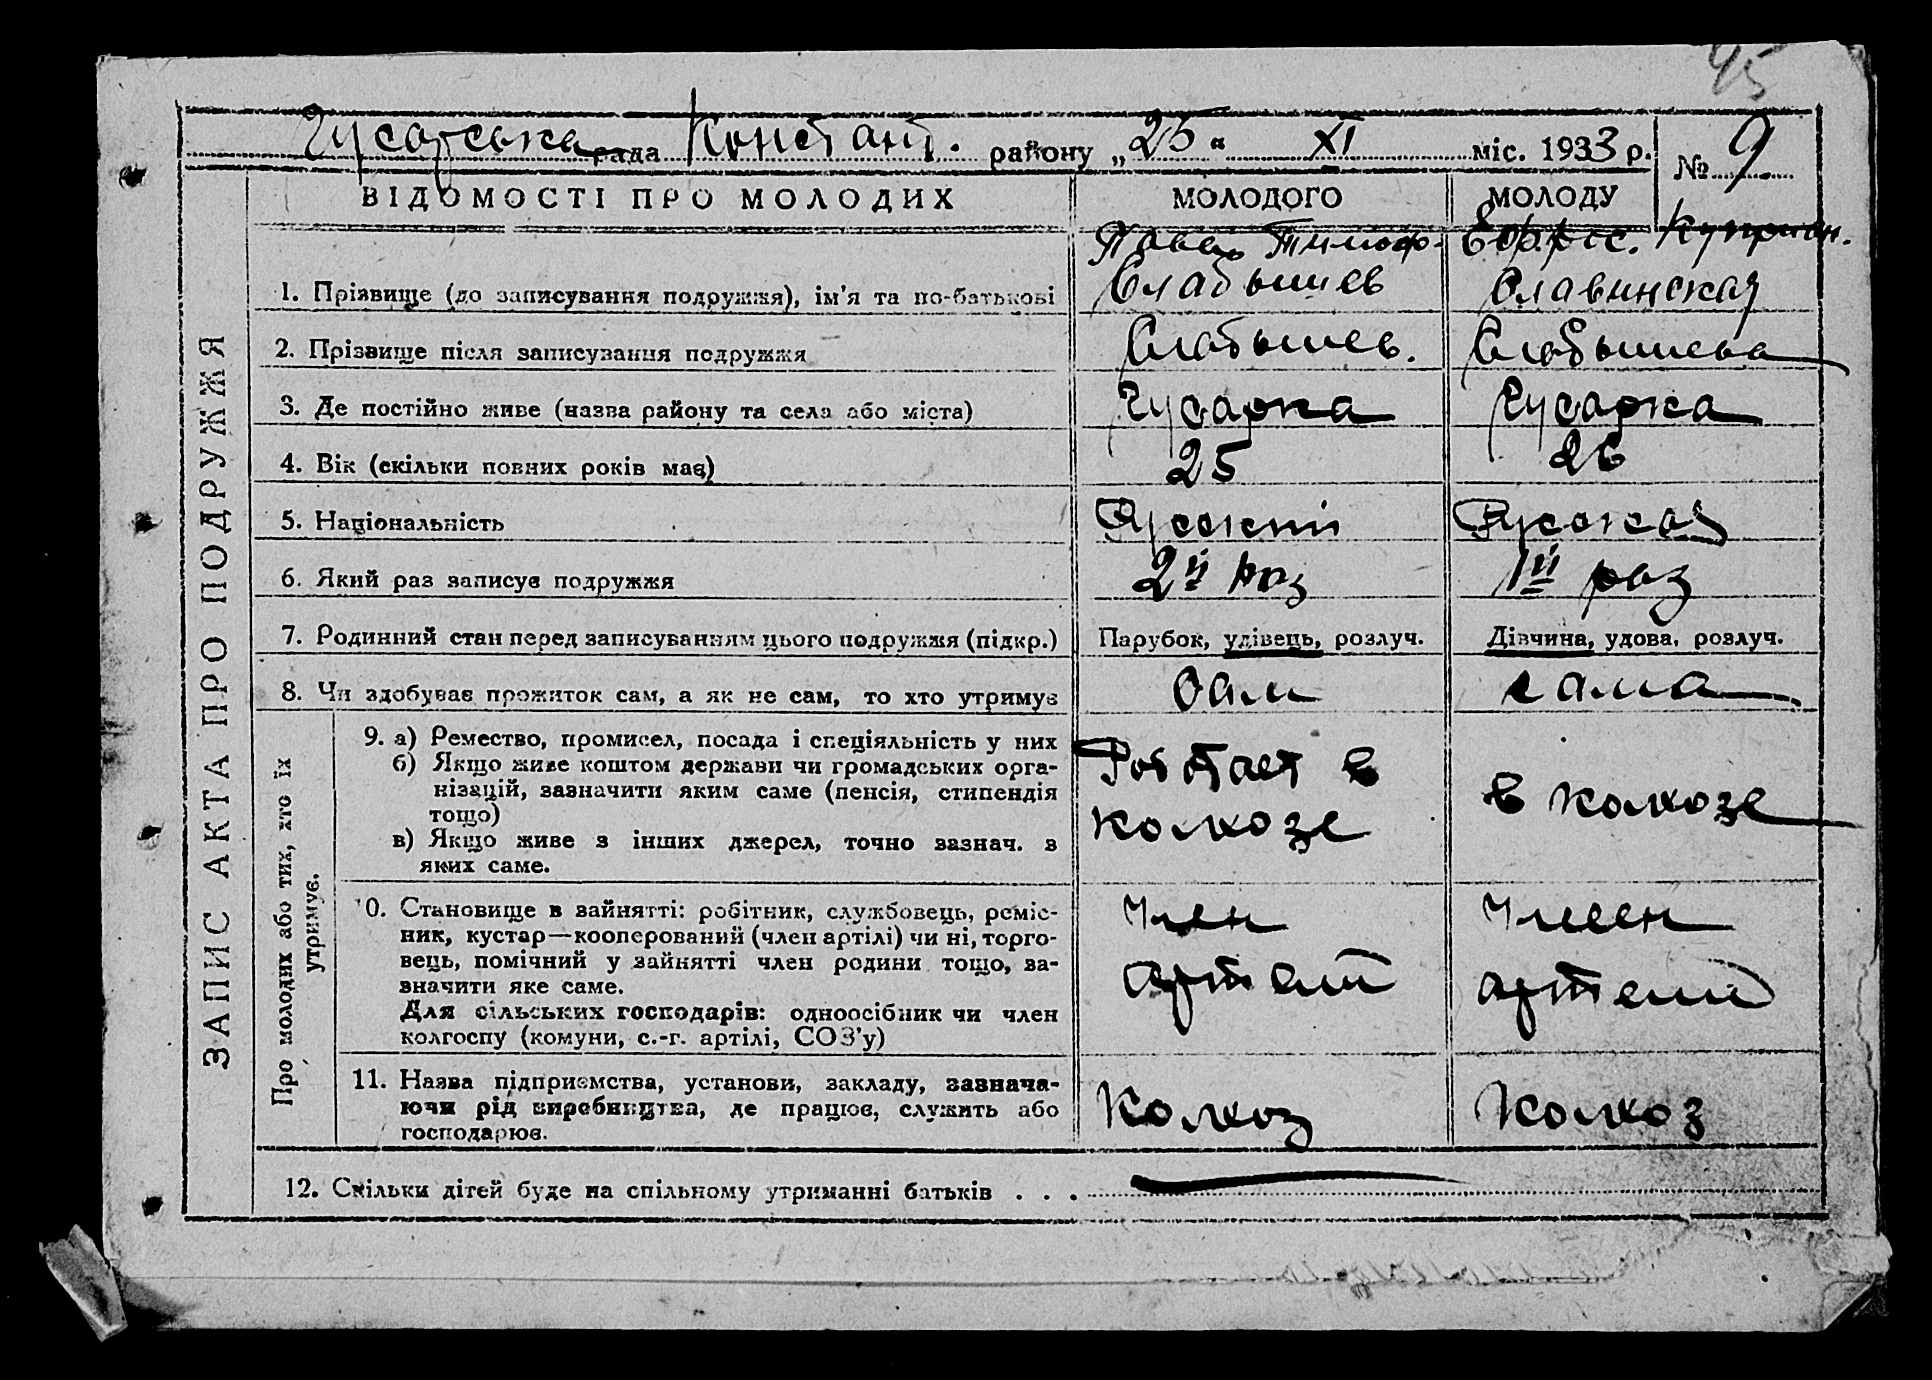 45
Чусарська рада Констант. району „25“ XI міс. 1933 р. № 9
ЗАПИС АКТА ПРО ПОДРУЖЖЯ
ВІДОМОСТІ ПРО МОЛОДИХ МОЛОДОГО МОЛОДУ
Павел Тимоф. Ефрос. Куприян.
1. Прізвище (до записування подружжя), ім'я та по-батькові Слабышев Славинская
2. Прізвище після записування подружжя Слабышев. Слабышева
3. Де постійно живе (назва району та села або міста) Гусарка Гусарка
4. Вік (скільки повних років має) 25 26
5. Національність Русский Русская
6. Який раз записує подружжя 2й раз 1й раз
7. Родинний стан перед записуванням цього подружжя (підкр.) Парубок, удівець, розлуч. Дівчина, удова, розлуч.
8. Чи здобуває прожиток сам, а як не сам, то хто утримує сам сама
Про молодих або тих, хто їх утримує.
9. а) Ремество, промисел, посада і спеціяльність у них
б) Якщо живе коштом держави чи громадських орга-
нізацій, зазначити яким саме (пенсія, стипендія
тощо)
в) Якщо живе з інших джерел, точно зазнач. з
яких саме.
Работает в
колхозе
в колхозе
10. Становище в зайнятті: робітник, службовець, реміс-
ник, кустар—кооперований (член артілі) чи ні, торго-
вець, помічний у зайнятті член родини тощо, за-
значити яке саме.
Для сільських господарів: одноосібник чи член
колгоспу (комуни, с.-г. артілі, СОЗ'у)
Член
артели
Член
артели
11. Назва підприємства, установи, закладу, зазнача-
ючи рід виробництва, де працює, служить або
господарює.
Колхоз Колхоз
12. Скільки дітей буде на спільному утриманні батьків . . .